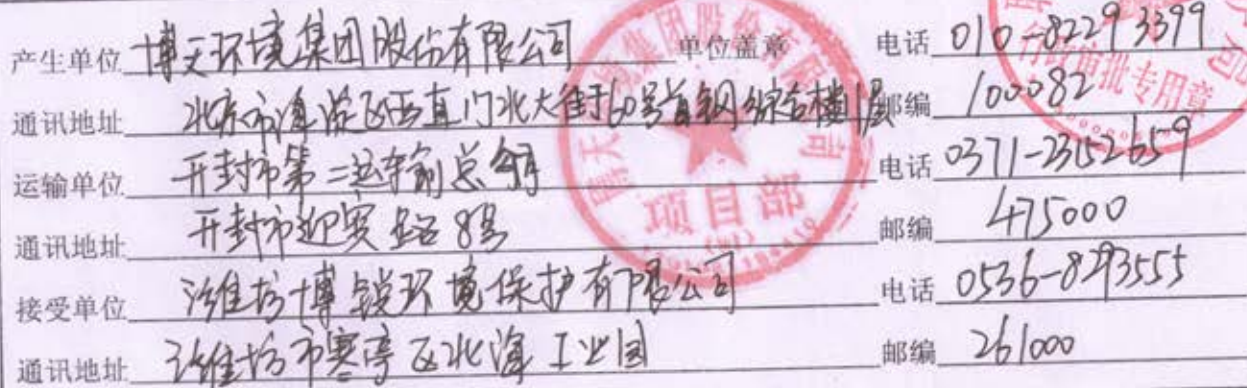 产生单位 博天环境集团股份有限公司 单位盖章 电话 010-82293399
通讯地址 北京市海淀区西直门北大街60号首钢综合楼1层 邮编 100082
运输单位 开封市第二运输总公司 电话 0371-23152659
通讯地址 开封市迎宾路8号 邮编 475000
接受单位 潍坊博锐环境保护有限公司 电话 0536-8293555
通讯地址 潍坊市寒亭区北海工业园 邮编 261000
博天环境集团股份有限公司
项目部
行政审批专用章